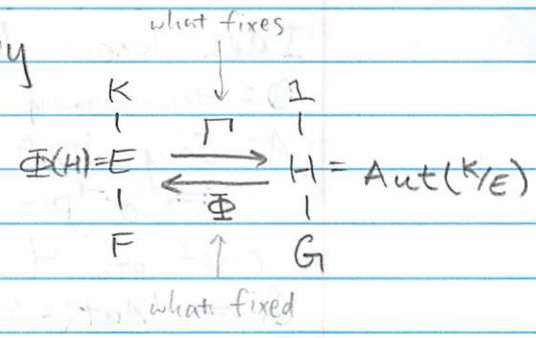 what fixes
y
K 1
Γ
Φ(H)=E H = Aut(K/E)
Φ
F G
what fixed